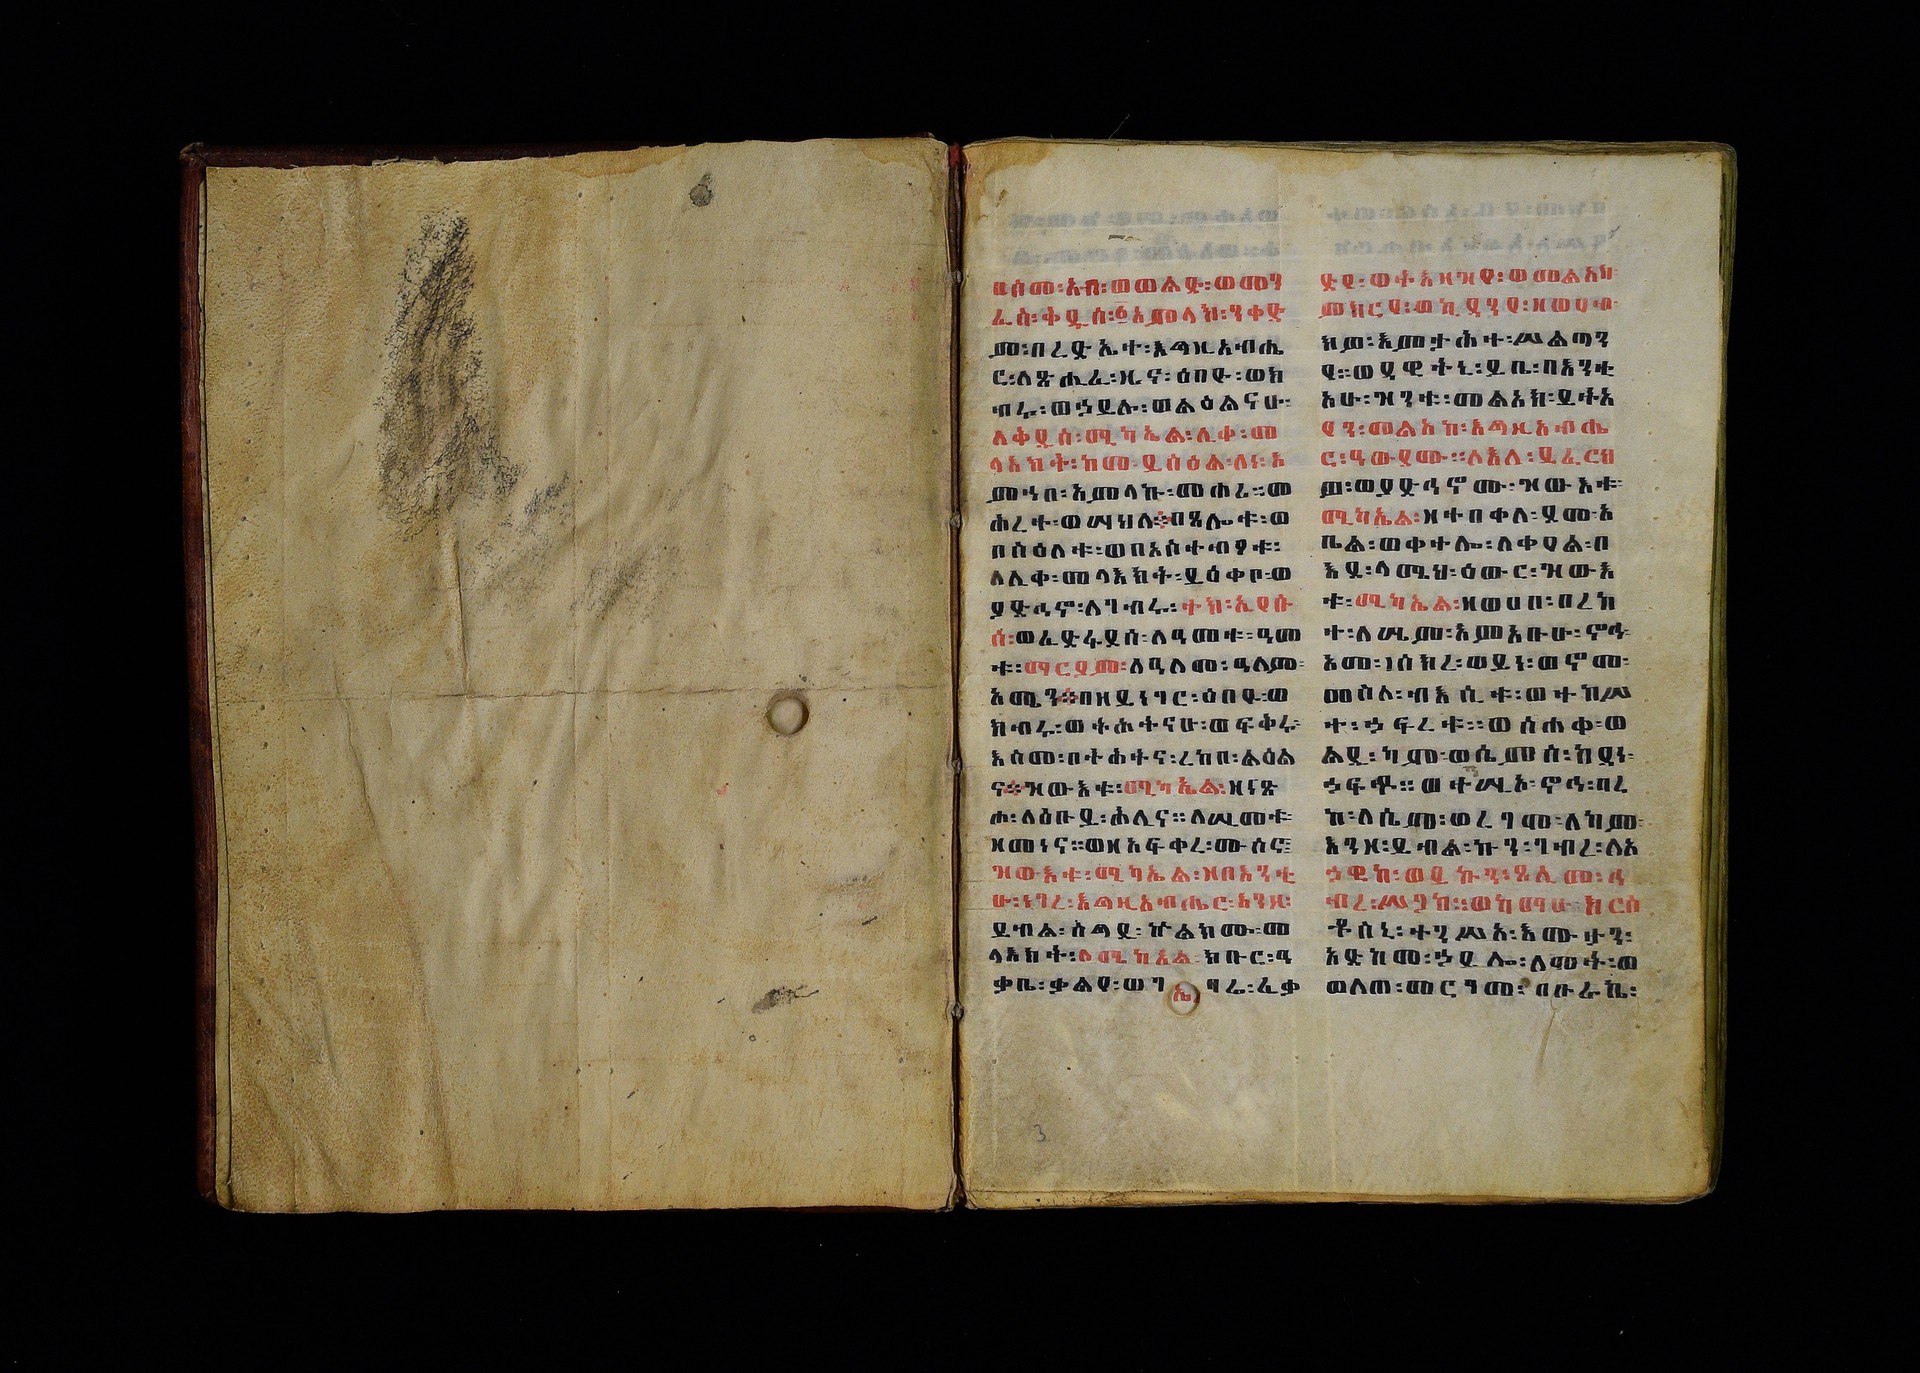 በስመ፡አብ፡ወወልድ፡ወመን
ፈስ፡ቅዱስ፡፩አምላክ፡ንቀድ
ም፡በረድኤተ፡እግዚአብሔ
ር፡ለጽሒፈ፡ዜና፡ዕበዩ፡ወክ
ብሩ፡ወኃይሉ፡ወልዕልናሁ፡
ለቅዱስ፡ሚካኤል፡ሊቀ፡መ
ላእክት፡ከመ፡ይስዕል፡ለነ፡እ
ምኀበ፡አምላኩ፡መሐሪ።መ
ሕረተ፡ወሣህለ።በጸሎቱ፡ወ
በስዕለቱ፡ወበአስተብፆቱ፡
ለሊቀ፡መላእክት፡ይዕቀቦ፡ወ
ያድኅኖ፡ለገብሩ፡ተክ፡ኢየሱ
ስ፡ወፈድፋይስ፡ለዓመቱ፡ዓመ
ቱ፡ማርያም፡ለዓለመ፡ዓለም፡
አሜን።በዘይነግር፡ዕበዩ፡ወ
ክብሩ፡ወትሕትናሁ፡ወፍቅሩ፡
እስመ፡በትሕትና፡ረከበ፡ልዕል
ና።ዝውእቱ፡ሚካኤል፡ዘነጽ
ሐ፡ለዕቡይ፡ሕሊና።ለሢመቱ፡
ዘመነና።ወዘአፍቀረ፡ሙስና፡
ዝውእቱ፡ሚካኤል፡ዘበእንቲ
ሁ፡ነገረ፡እግዚአብሔር፡እንዘ፡
ይብል፡ስግዱ፡ኵልክሙ፡መ
ላእክት፡ለሚካኤል፡ክቡር፡ዓ
ቃቤ፡ቃልየ፡ወገ ኤ ገሬ፡ፈቃ
ድየ፡ወትእዛዝየ፡ወመልአክ
ምክርየ፡ወኪዳንየ፡ዘወሀብ
ክዎ፡እምታሕተ፡ሥልጣን
የ።ወዳዊትኒ፡ይቤ፡በእንቲ
አሁ፡ዝንቱ፡መልአክ፡ይትአ
የን፡መልአከ፡እግዚአብሔ
ር፡ዓውዶሙ።ለእለ፡ይፈርህ
ዎ፡ወያድኅኖሙ፡ዝውእቱ፡
ሚካኤል፡ዘተበቀለ፡ደሙ፡አ
ቤል፡ወቀተሎ፡ለቀየል፡በ
እደ፡ላሜህ፡ዕውር፡ዝውእ
ቱ፡ሚካኤል፡ዘወሀበ፡በረከ
ተ፡ለሴም፡እምአቡሁ፡ኖኅ፡
አመ፡ሰክረ፡ወይነ፡ወኖመ፡
መስለ፡ብእሲቱ፡ወተከሥ
ተ፡ኃፍረቱ።ወሰሐቀ፡ወ
ልዱ፡ካም፡ወሴምሰ፡ከደነ፡
ኃፍረቶ።ወተሢኦ፡ኖኅ፡ባረ
ከ፡ለሴም፡ወረገሞ፡ለካም፡
እንዘ፡ይብል፡ኩን፡ገብረ፡ለአ
ኃዊከ፡ወይኩን፡ጸሊመ፡ኅ
ብረ፡ሥጋከ።ወከማሁ፡ክርስ
ቶስኒ፡ተንሥአ፡እሙታን፡
አድከመ፡ኃይሎ፡ለሞት፡ወ
ወለጠ፡መርገመ፡በቡራኬ፡
3